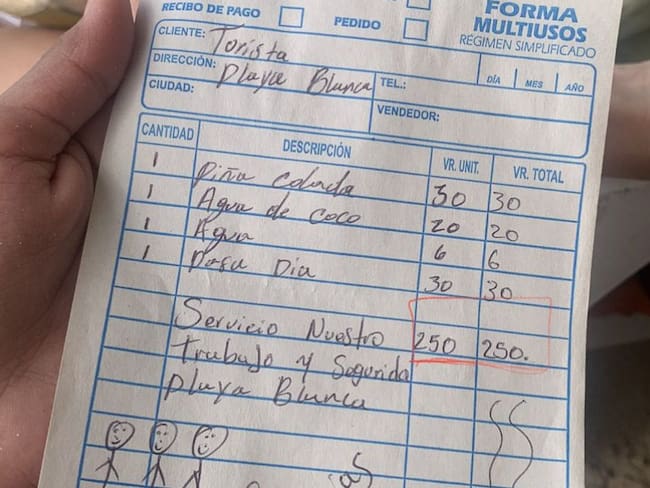 RECIBO DE PAGO
PEDIDO
FORMA
MULTIUSOS
RÉGIMEN SIMPLIFICADO
CLIENTE: Torista
DIRECCIÓN: Playa Blanca
TEL.:
DÍA MES AÑO
CIUDAD:
VENDEDOR:
CANTIDAD DESCRIPCIÓN VR. UNIT. VR. TOTAL
1 Piña Colada 30 30
1 Agua de coco 20 20
1 Agua 6 6
1 Pasa Dia 30 30
Servicio Nuestro 250 250.
Trabajo y Segurida
Playa Blanca